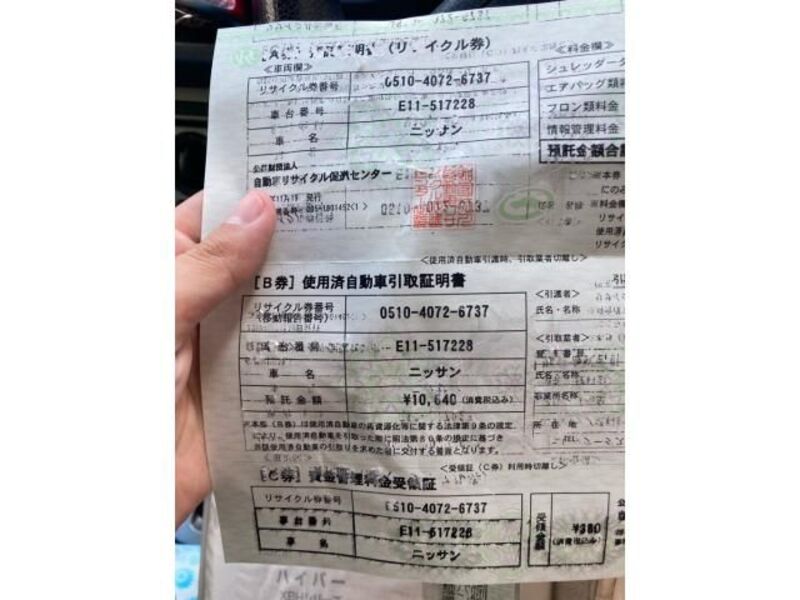 （リサイクル券）
＜車両欄＞
＜料金欄＞
リサイクル券番号 0510-4072-6737
シュレッダーダ
車台番号 E11-517228
エアバッグ類料
車名 ニッサン
フロン類料金
情報管理料金
預託金額合計
公益財団法人
自動車リサイクル促進センター
発行
※本券
にのみ
※料金欄
リサイ
使用済
リサイク
＜使用済自動車引渡時、引取業者切離し＞
［B券］使用済自動車引取証明書
リサイクル券番号
（移動報告番号） 0510-4072-6737
＜引渡者＞
氏名・名称
車台番号 E11-517228
＜引取業者＞
車名 ニッサン
氏名・名称
預託金額 ¥10,640（消費税込み）
事業所名称
所在地
※本券（B券）は使用済自動車の再資源化等に関する法律第９条の規定
により、使用済自動車を引取った際に同法第８０条の規定に基づき
当該使用済自動車の引取りを求めた者に交付する書面となります。
＜受領証（C券）利用時切離し＞
［C券］資金管理料金受領証
リサイクル券番号 0510-4072-6737
車台番号 E11-517228
車名 ニッサン
受領金額 ¥380
（消費税込み）